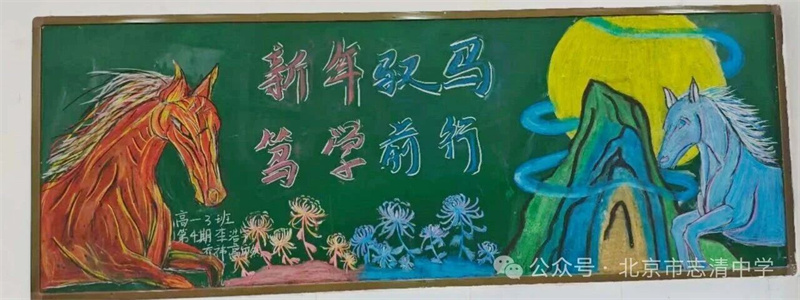 新年驭马
笃学前行
高一3班
第4期李浩宇
公众号·北京市志清中学